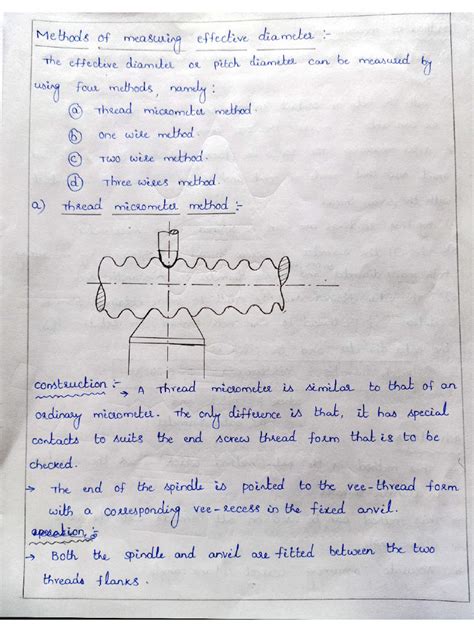 Methods of measuring effective diameter :-
The effective diameter or pitch diameter can be measured by
using four methods, namely :
(a) Thread micrometer method.
(b) one wire method.
(c) Two wire method.
(d) Three wires method.
a) Thread micrometer method :-
construction :- → A Thread micrometer is similar to that of an
ordinary micrometer. The only difference is that, it has special
contacts to suits the end screw thread form that is to be
checked.
→ The end of the spindle is pointed to the vee-thread form
with a corresponding vee-recess in the fixed anvil.
operation :-
→ Both the spindle and anvil are fitted between the two
threads flanks.